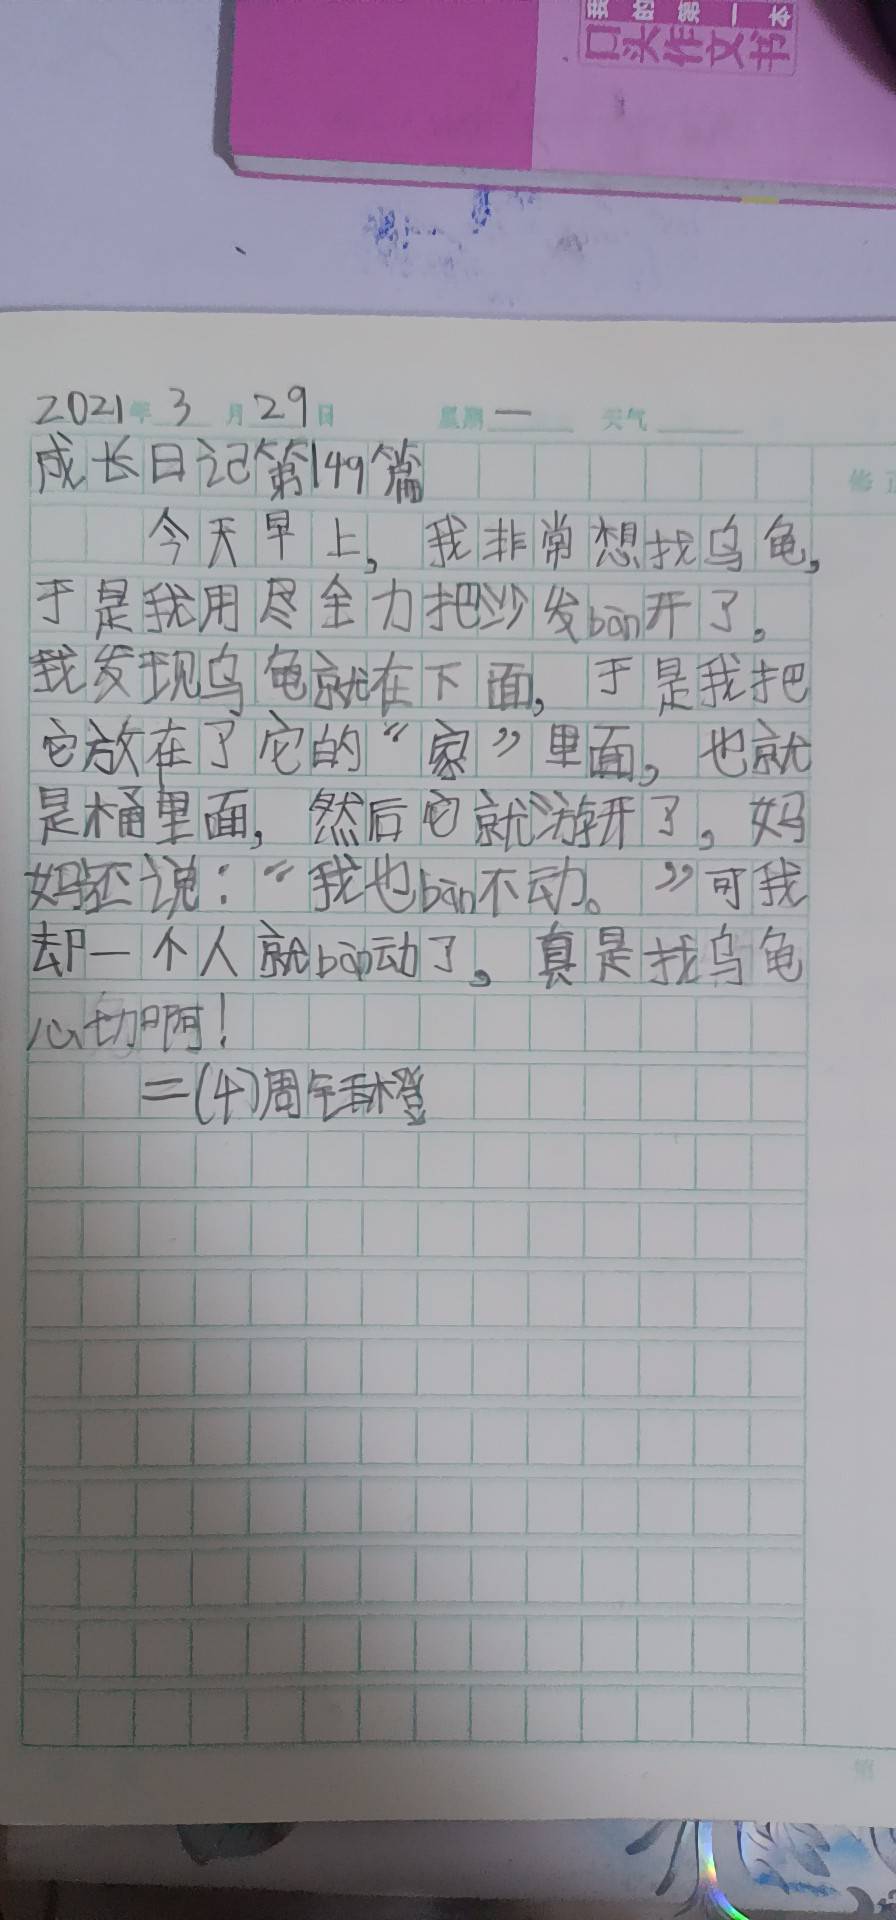 我的第一本
口头作文书
2021年3月29日 星期一 天气
成长日记第149篇
修正
今天早上，我非常想找乌龟，
于是我用尽全力把沙发bān开了。
我发现乌龟就在下面，于是我把
它放在了它的“家”里面，也就
是桶里面，然后它就游开了。妈
妈还说：“我也bān不动。”可我
却一个人就bān动了。真是找乌龟
心切啊！
二(4)周
第